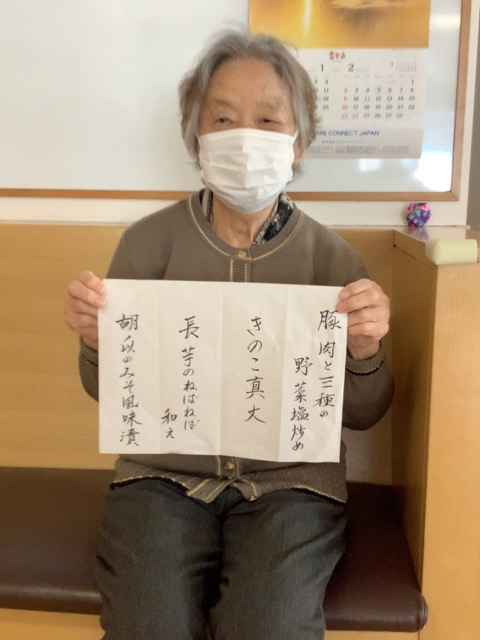 豚肉と三種の
野菜塩炒め
きのこ真丈
長芋のねばねば
和え
胡瓜のみそ風味漬
1
2
CARE CONNECT JAPAN